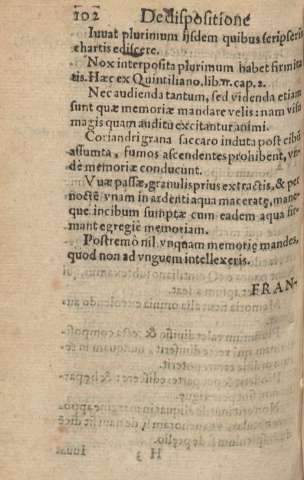 102 De dispositione
Iuuat plurimum ijsdem quibus scripseris
chartis ediscere.
Nox interposita plurimum habet firmita
tis. Hæc ex Quintiliano. lib. cap. 2.
Nec audienda tantum, sed videnda etiam
sunt quæ memoriæ mandare velis: nam visu
magis quam auditu excitantur animi.
Coriandri grana saccaro induta post cibū
assumta, fumos ascendentes prohibent, vn-
de memoriæ conducunt.
Vuæ passæ, granulis prius extractis, & per
noctē vnam in ardenti aqua maceratę, mane-
que. incibum sumptæ cum eadem aqua fir-
mant egregiè memoriam.
Postremò nil vnquam memorię mandes,
quod non ad vnguem intellexeris.
FRAN-
H 3